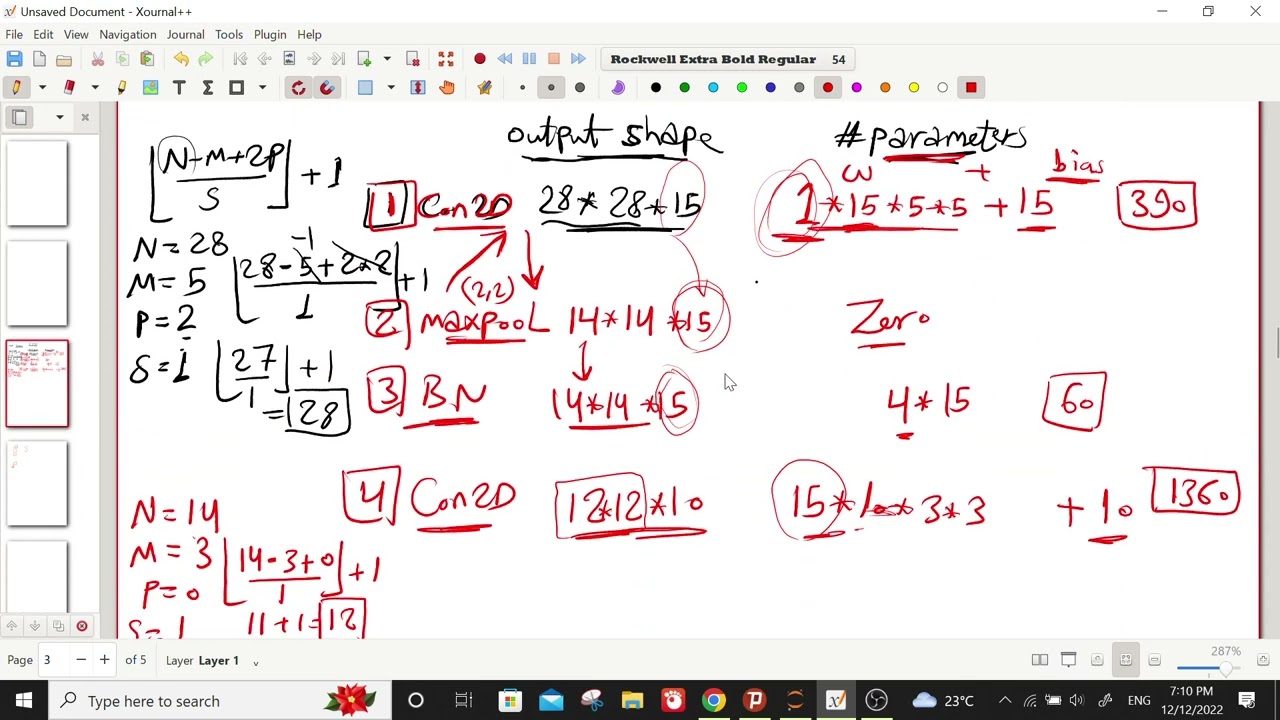 Unsaved Document - Xournal++
File Edit View Navigation Journal Tools Plugin Help
Rockwell Extra Bold Regular 54
output shape #parameters
⌊(N-M+2P)/S⌋ + 1
w + bias
1 Con2D 28*28*15 1*15*5*5 + 15 390
N=28
M=5
P=2
S=1
⌊(28-5+2*2)/1⌋+1
-1
⌊27/1⌋+1
=28
(2,2)
2 maxpool 14*14*15 Zero
3 BN 14*14*15 4*15 60
4 Con2D 12*12*10 15*10*3*3 + 10 1360
N=14
M=3
P=0
S=1
⌊(14-3+0)/1⌋+1
11+1=12
Page 3 of 5 Layer Layer 1
287%
Type here to search
23°C
ENG
7:10 PM
12/12/2022